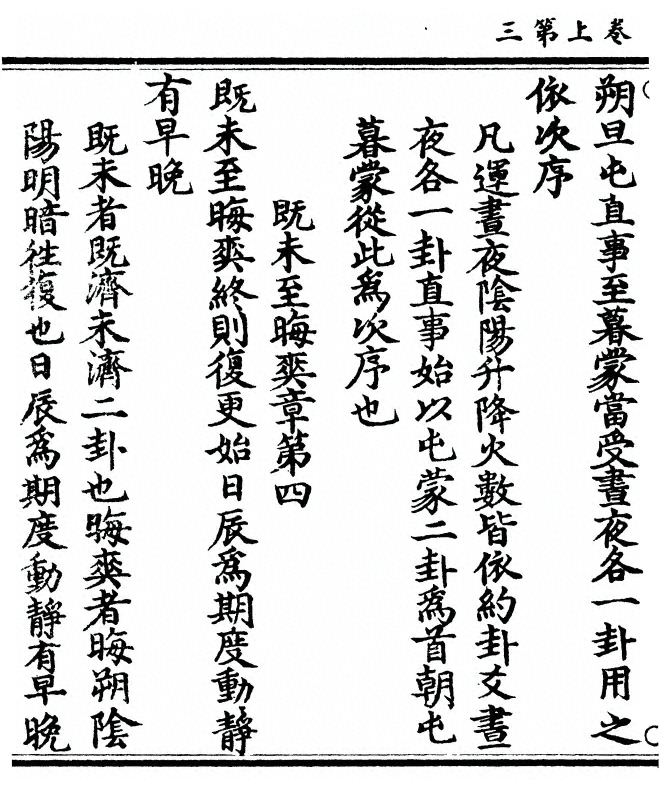 卷上第三
朔旦屯直事至暮蒙當受晝夜各一卦用之
依次序
凡運晝夜陰陽升降火數皆依約卦爻晝
夜各一卦直事始以屯蒙二卦為首朝屯
暮蒙從此為次序也
既未至晦爽章第四
既未至晦爽終則復更始日辰為期度動靜
有早晚
既未者既濟未濟二卦也晦爽者晦朔陰
陽明暗往復也日辰為期度動靜有早晚